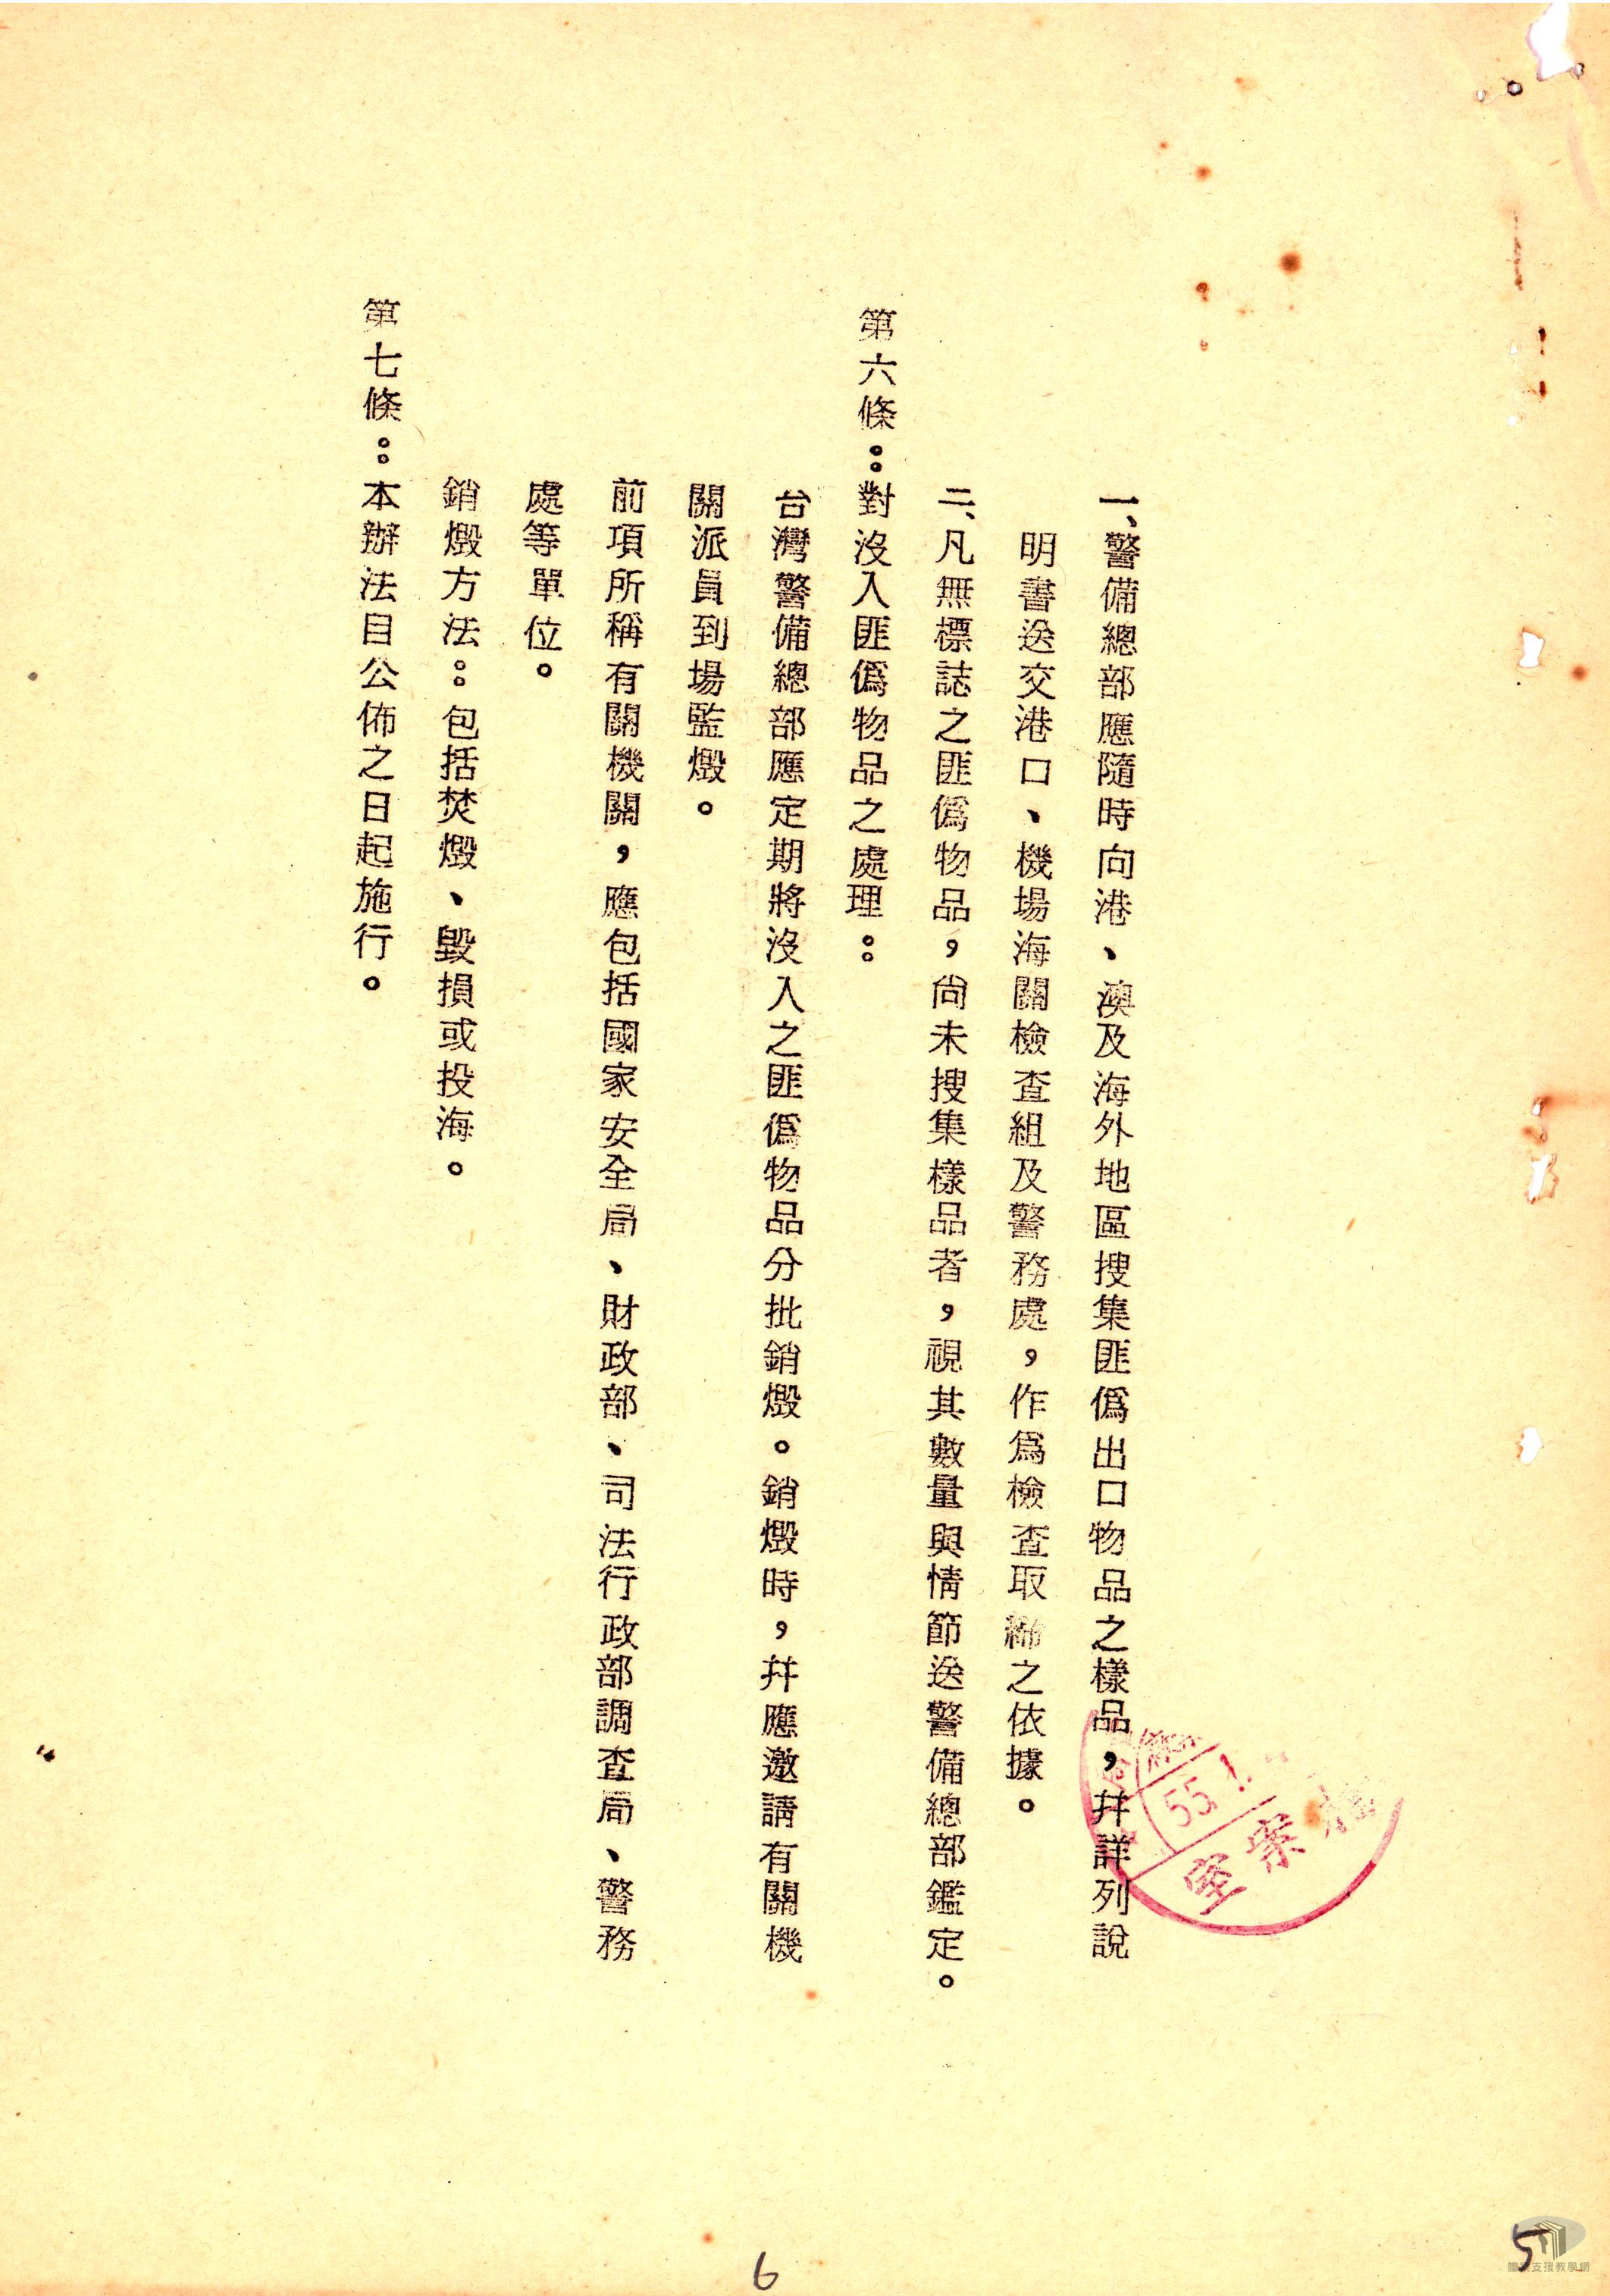 一、警備總部應隨時向港、澳及海外地區搜集匪僞出口物品之樣品，幷詳列說
明書送交港口、機場海關檢查組及警務處，作爲檢查取締之依據。
二、凡無標誌之匪僞物品，尚未搜集樣品者，視其數量與情節送警備總部鑑定。
第六條：對沒入匪僞物品之處理：
台灣警備總部應定期將沒入之匪僞物品分批銷燬。銷燬時，幷應邀請有關機
關派員到場監燬。
前項所稱有關機關，應包括國家安全局、財政部、司法行政部調查局、警務
處等單位。
銷燬方法：包括焚燬、毀損或投海。
第七條：本辦法自公佈之日起施行。
55.1.
檔案室
6
5
檔案支援教學網